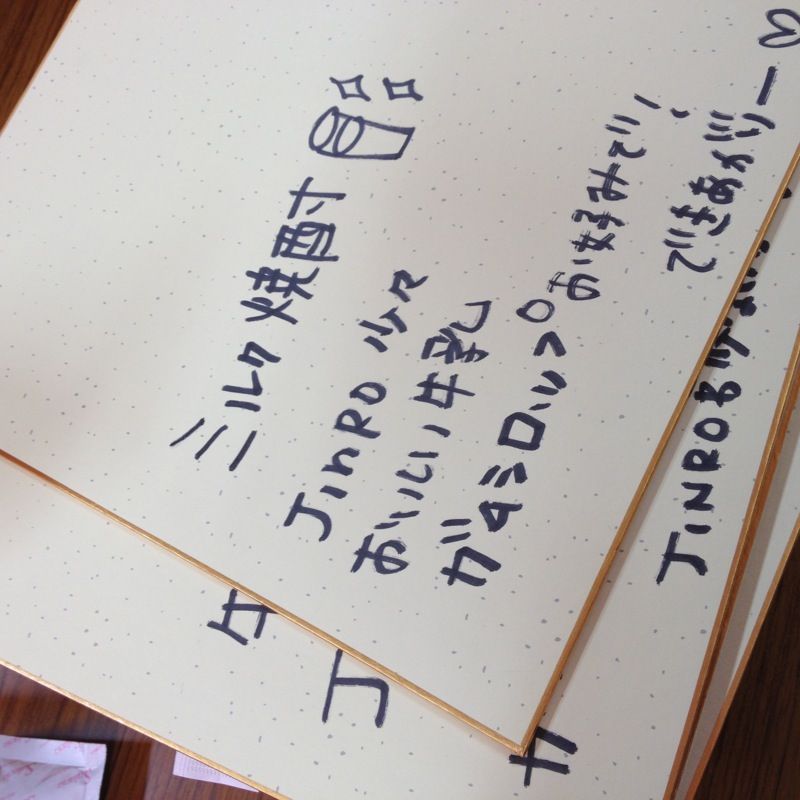 ミルク焼酎
JINRO 少々
おいしい牛乳
ガムシロップ お好みで!!
できあがりー♡
JINROを
J